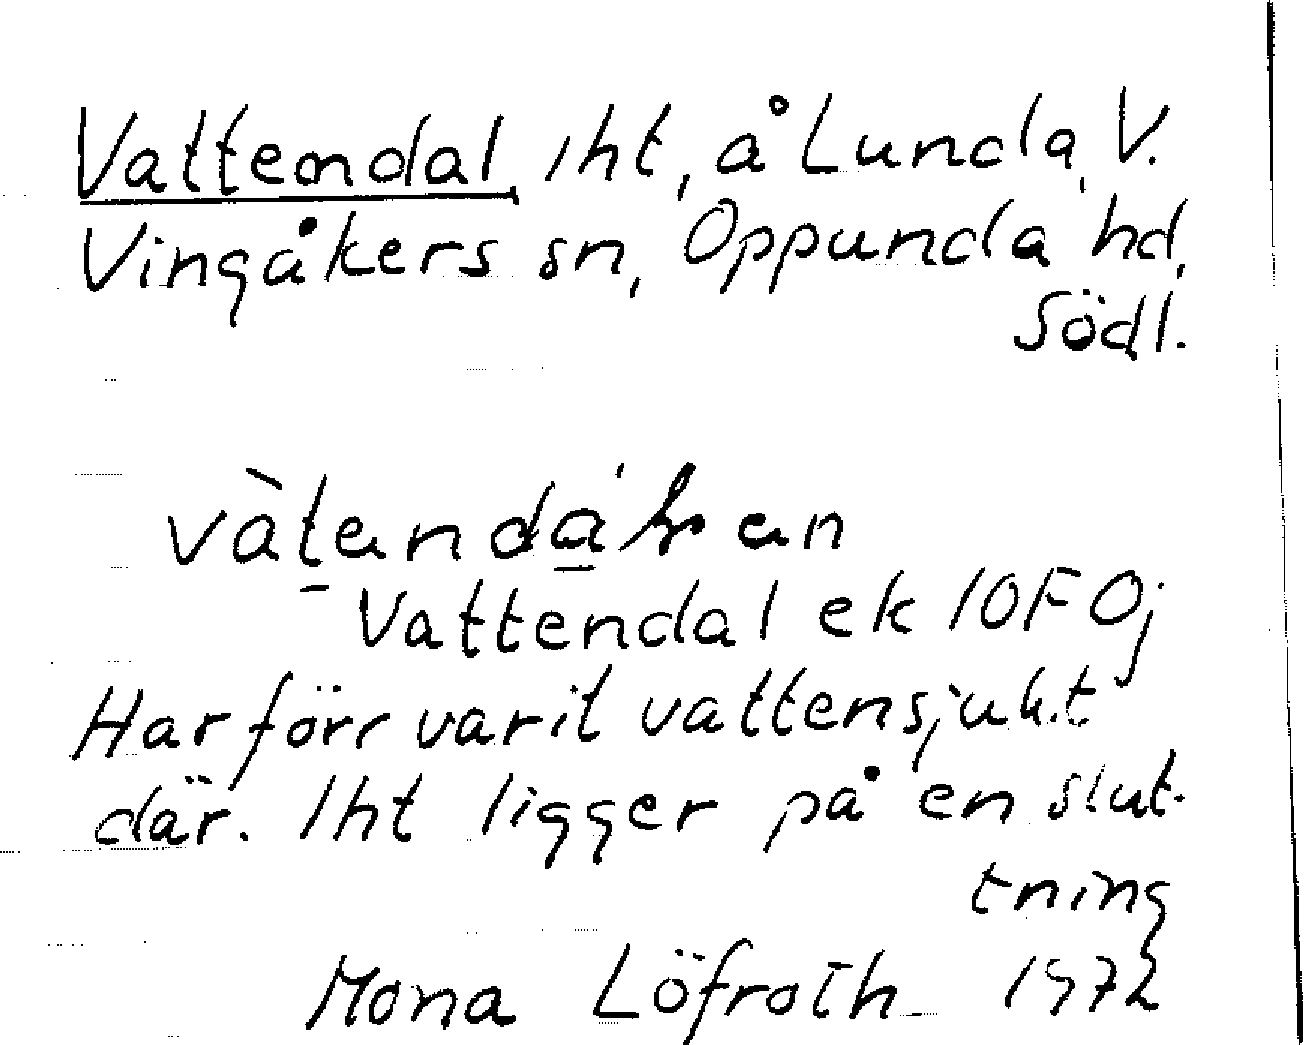 Vattendal, lht, å Lunda, V.
Vingåkers sn, Oppunda hd,
Södl.
Vattendal ek 10F 0j
Har förr varit vattensjukt
där. lht ligger på en slut-
tning
Mona Löfroth 1972